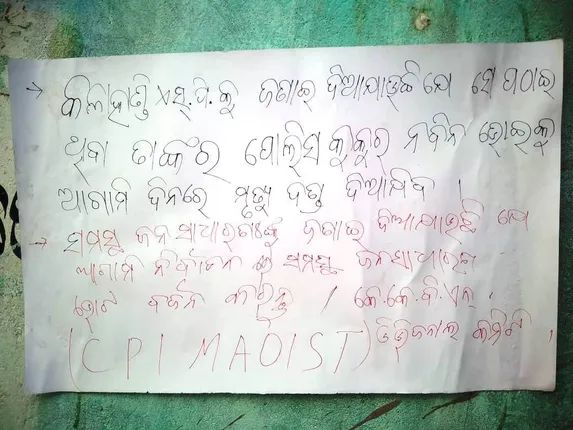 → କଳାହାଣ୍ଡି ଏସ୍.ପି.କୁ ଜଣାଇ ଦିଆଯାଉଛି ଯେ ସେ ପଠାଇ
ଥିବା ତାଙ୍କର ପୋଲିସ କୁକୁର ନବିନ ହୋଇକୁ
ଆଗାମି ଦିନରେ ମୃତ୍ୟୁ ଦଣ୍ଡ ଦିଆଯିବ ।
→ ସମସ୍ତ ଜନସାଧାରଣଙ୍କୁ ଜଣାଇ ଦିଆଯାଉଛି ଯେ
ଆଗାମି ନିର୍ବାଚନ କୁ ସମସ୍ତ ଜନସାଧାରଣ
ଭୋଟ ବର୍ଜନ କରନ୍ତୁ । କେ.କେ.ବି.ଏନ୍.
(CPI MAOIST) ଡିଭିଜନାଲ କମିଟି ।